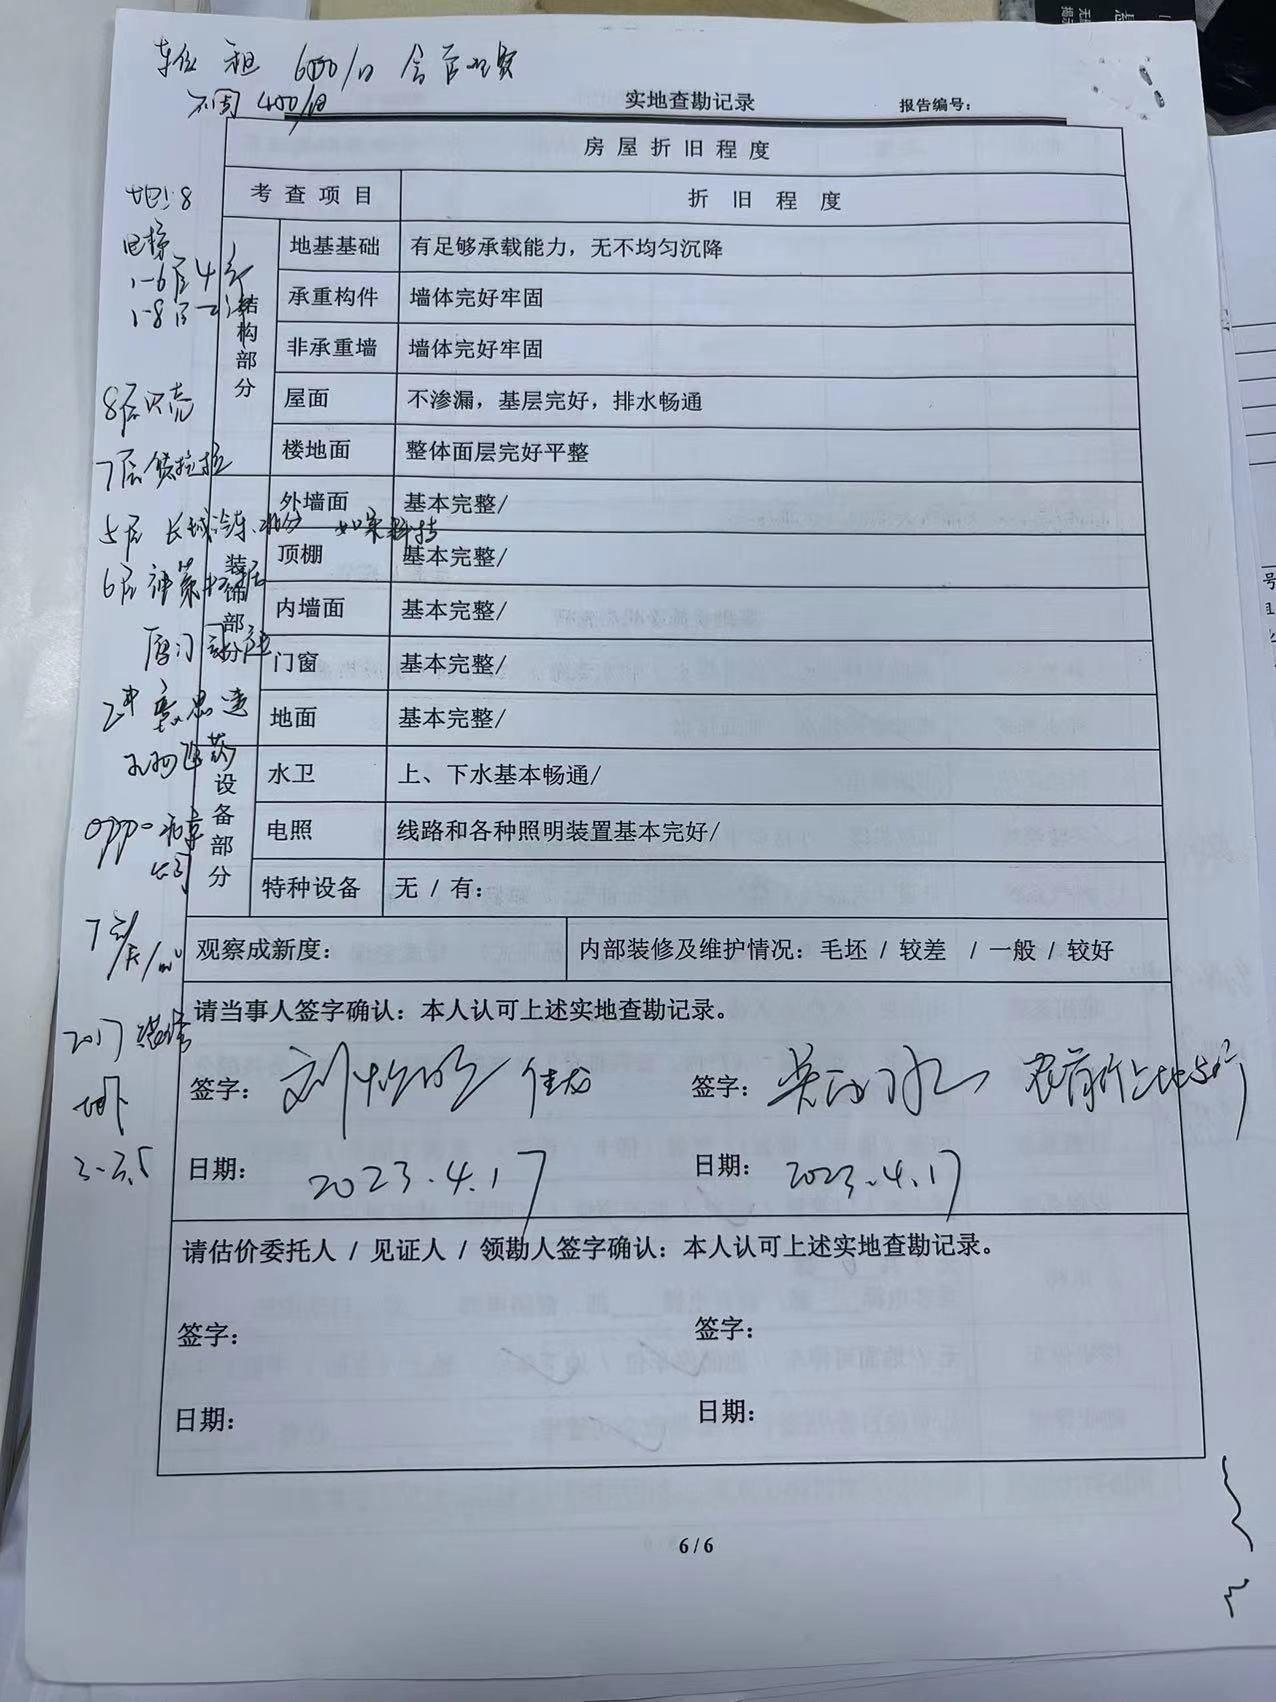 车位 租 600/月 含管理费
400/月
实地查勘记录 报告编号：
房屋折旧程度
考查项目 折旧程度
结构部分
地基基础 有足够承载能力，无不均匀沉降
承重构件 墙体完好牢固
非承重墙 墙体完好牢固
屋面 不渗漏，基层完好，排水畅通
楼地面 整体面层完好平整
装饰部分
外墙面 基本完整/
顶棚 基本完整/
内墙面 基本完整/
门窗 基本完整/
地面 基本完整/
设备部分
水卫 上、下水基本畅通/
电照 线路和各种照明装置基本完好/
特种设备 无 / 有：
观察成新度： 内部装修及维护情况：毛坯 / 较差 / 一般 / 较好
请当事人签字确认：本人认可上述实地查勘记录。
签字： 签字：
日期：2023.4.17 日期：2023.4.17
请估价委托人 / 见证人 / 领勘人签字确认：本人认可上述实地查勘记录。
签字： 签字：
日期： 日期：
6 / 6
电梯
1-6层4
1-8层
8层
7层
5层 长城
6层 神策
厦门
oppo
公司
2017 装修
地下